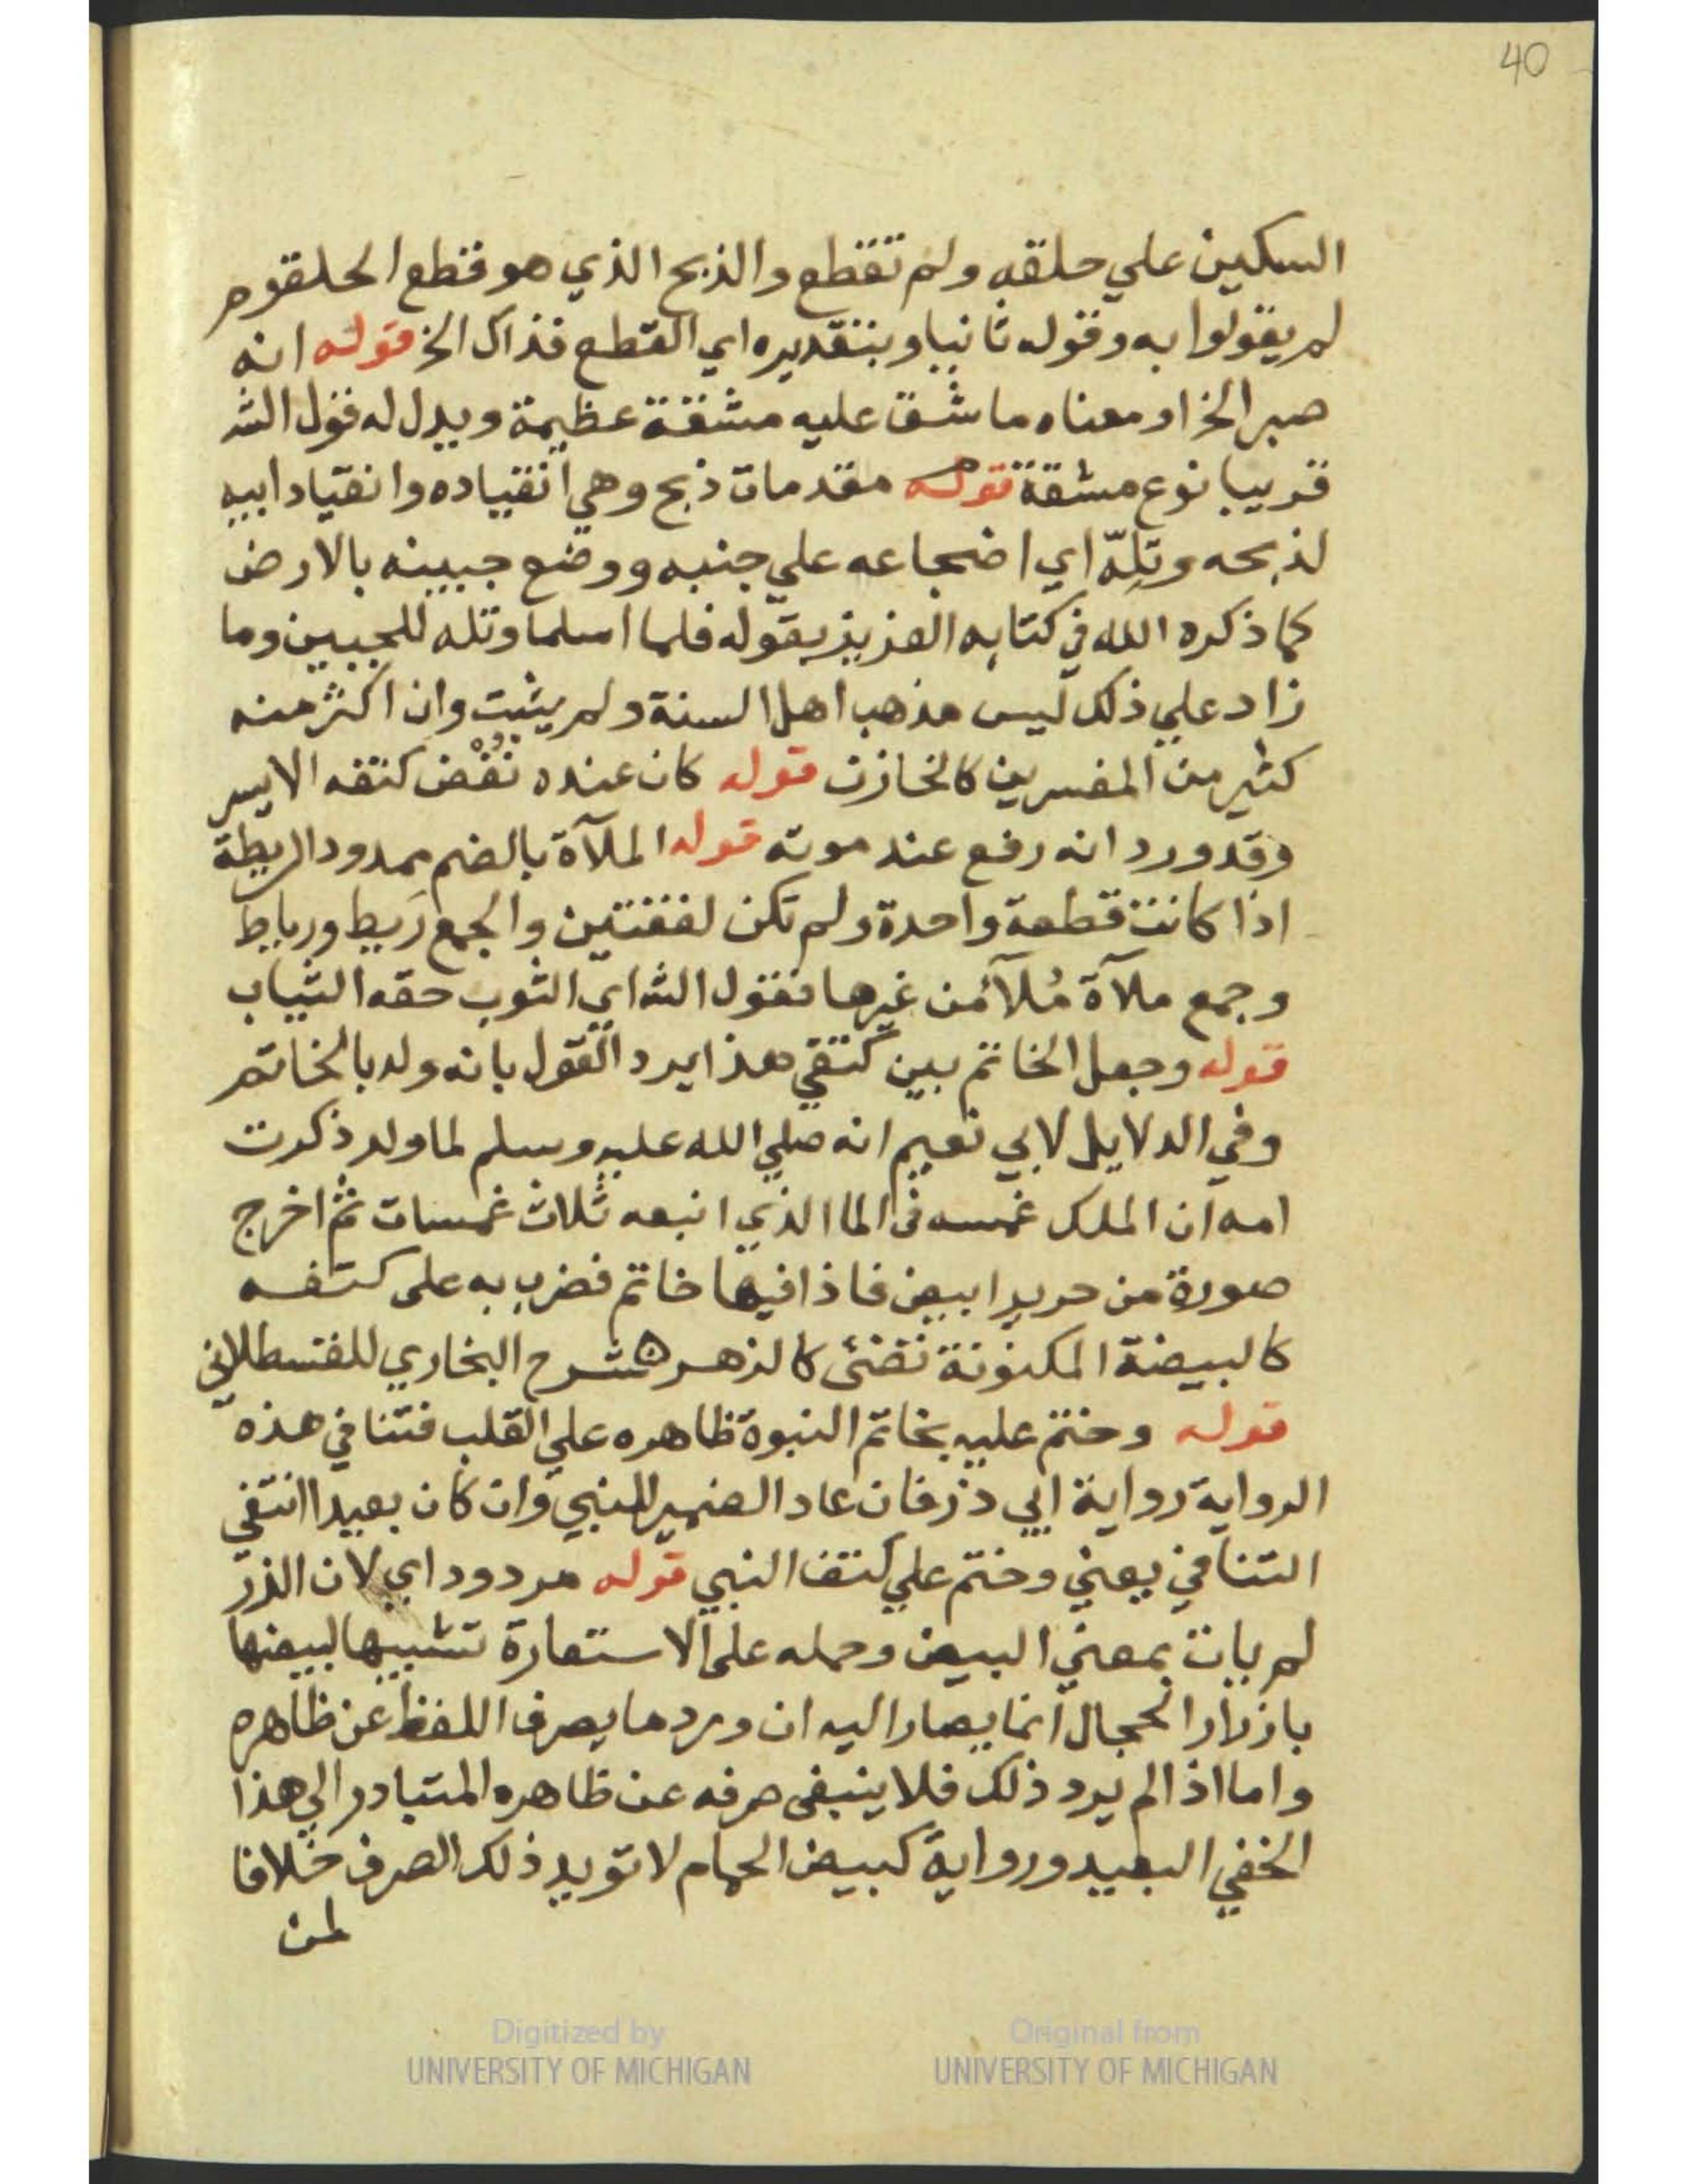 40
السكين علي حلقه ولم تقطع والذبح الذي هو قطع الحلقوم
لم يقولوا به وقوله ثانيا وبتقديره اي القطع فذاك الخ قوله انه
صبر الخ او معناه ما شق عليه مشقة عظيمة ويدل له قول الش
قريبا نوع مشقة قوله مقدمات ذبح وهي انقياده وانقياد ابيه
لذبحه وتلّه اي اضجاعه علي جنبه ووضع جبينه بالارض
كما ذكره الله في كتابه العزيز بقوله فلما اسلما وتله للجبين وما
زاد علي ذلك ليس مذهب اهل السنة ولم يثبت وان اكثر منه
كثير من المفسرين كالخازن قوله كان عنده نُغْض كتفه الايسر
وقد ورد انه رفع عند موته قوله الملآة بالضم ممدود الريطة
اذا كانت قطعة واحدة ولم تكن لفقتين والجمع رَيط ورياط
وجمع ملآة مُلآ من غيرها فقول الش اي الثوب حقه الثياب
قوله وجعل الخاتم بين كتفي هذا يرد القول بانه ولد بالخاتم
وفي الدلايل لابي نعيم انه صلي الله عليه وسلم لما ولد ذكرت
امه ان الملك غمسه في الما الذي انبعه ثلاث غمسات ثم اخرج
صورة من حرير ابيض فاذا فيها خاتم فضرب به على كتفه
كالبيضة المكنونة تضئ كالزهره شرح البخاري للقسطلاني
قوله وختم عليه بخاتم النبوة ظاهره علي القلب فتنافي هذه
الرواية رواية ابي ذر فان عاد الضمير للنبي وان كان بعيدا انتفي
التنافي يعني وختم علي كتف النبي قوله مردود اي لان الزر
لم يات بمعني البيض وحمله على الاستعارة تشبيها لبيضها
بازرار الحجال انما يصار اليه ان ورد ما يصرف اللفظ عن ظاهره
واما اذا لم يرد ذلك فلا ينبغي صرفه عن ظاهره المتبادر الي هذا
الخفي البعيد ورواية كبيض الحمام لا تويد ذلك الصرف خلافا
لمن
Digitized by
UNIVERSITY OF MICHIGAN
Original from
UNIVERSITY OF MICHIGAN